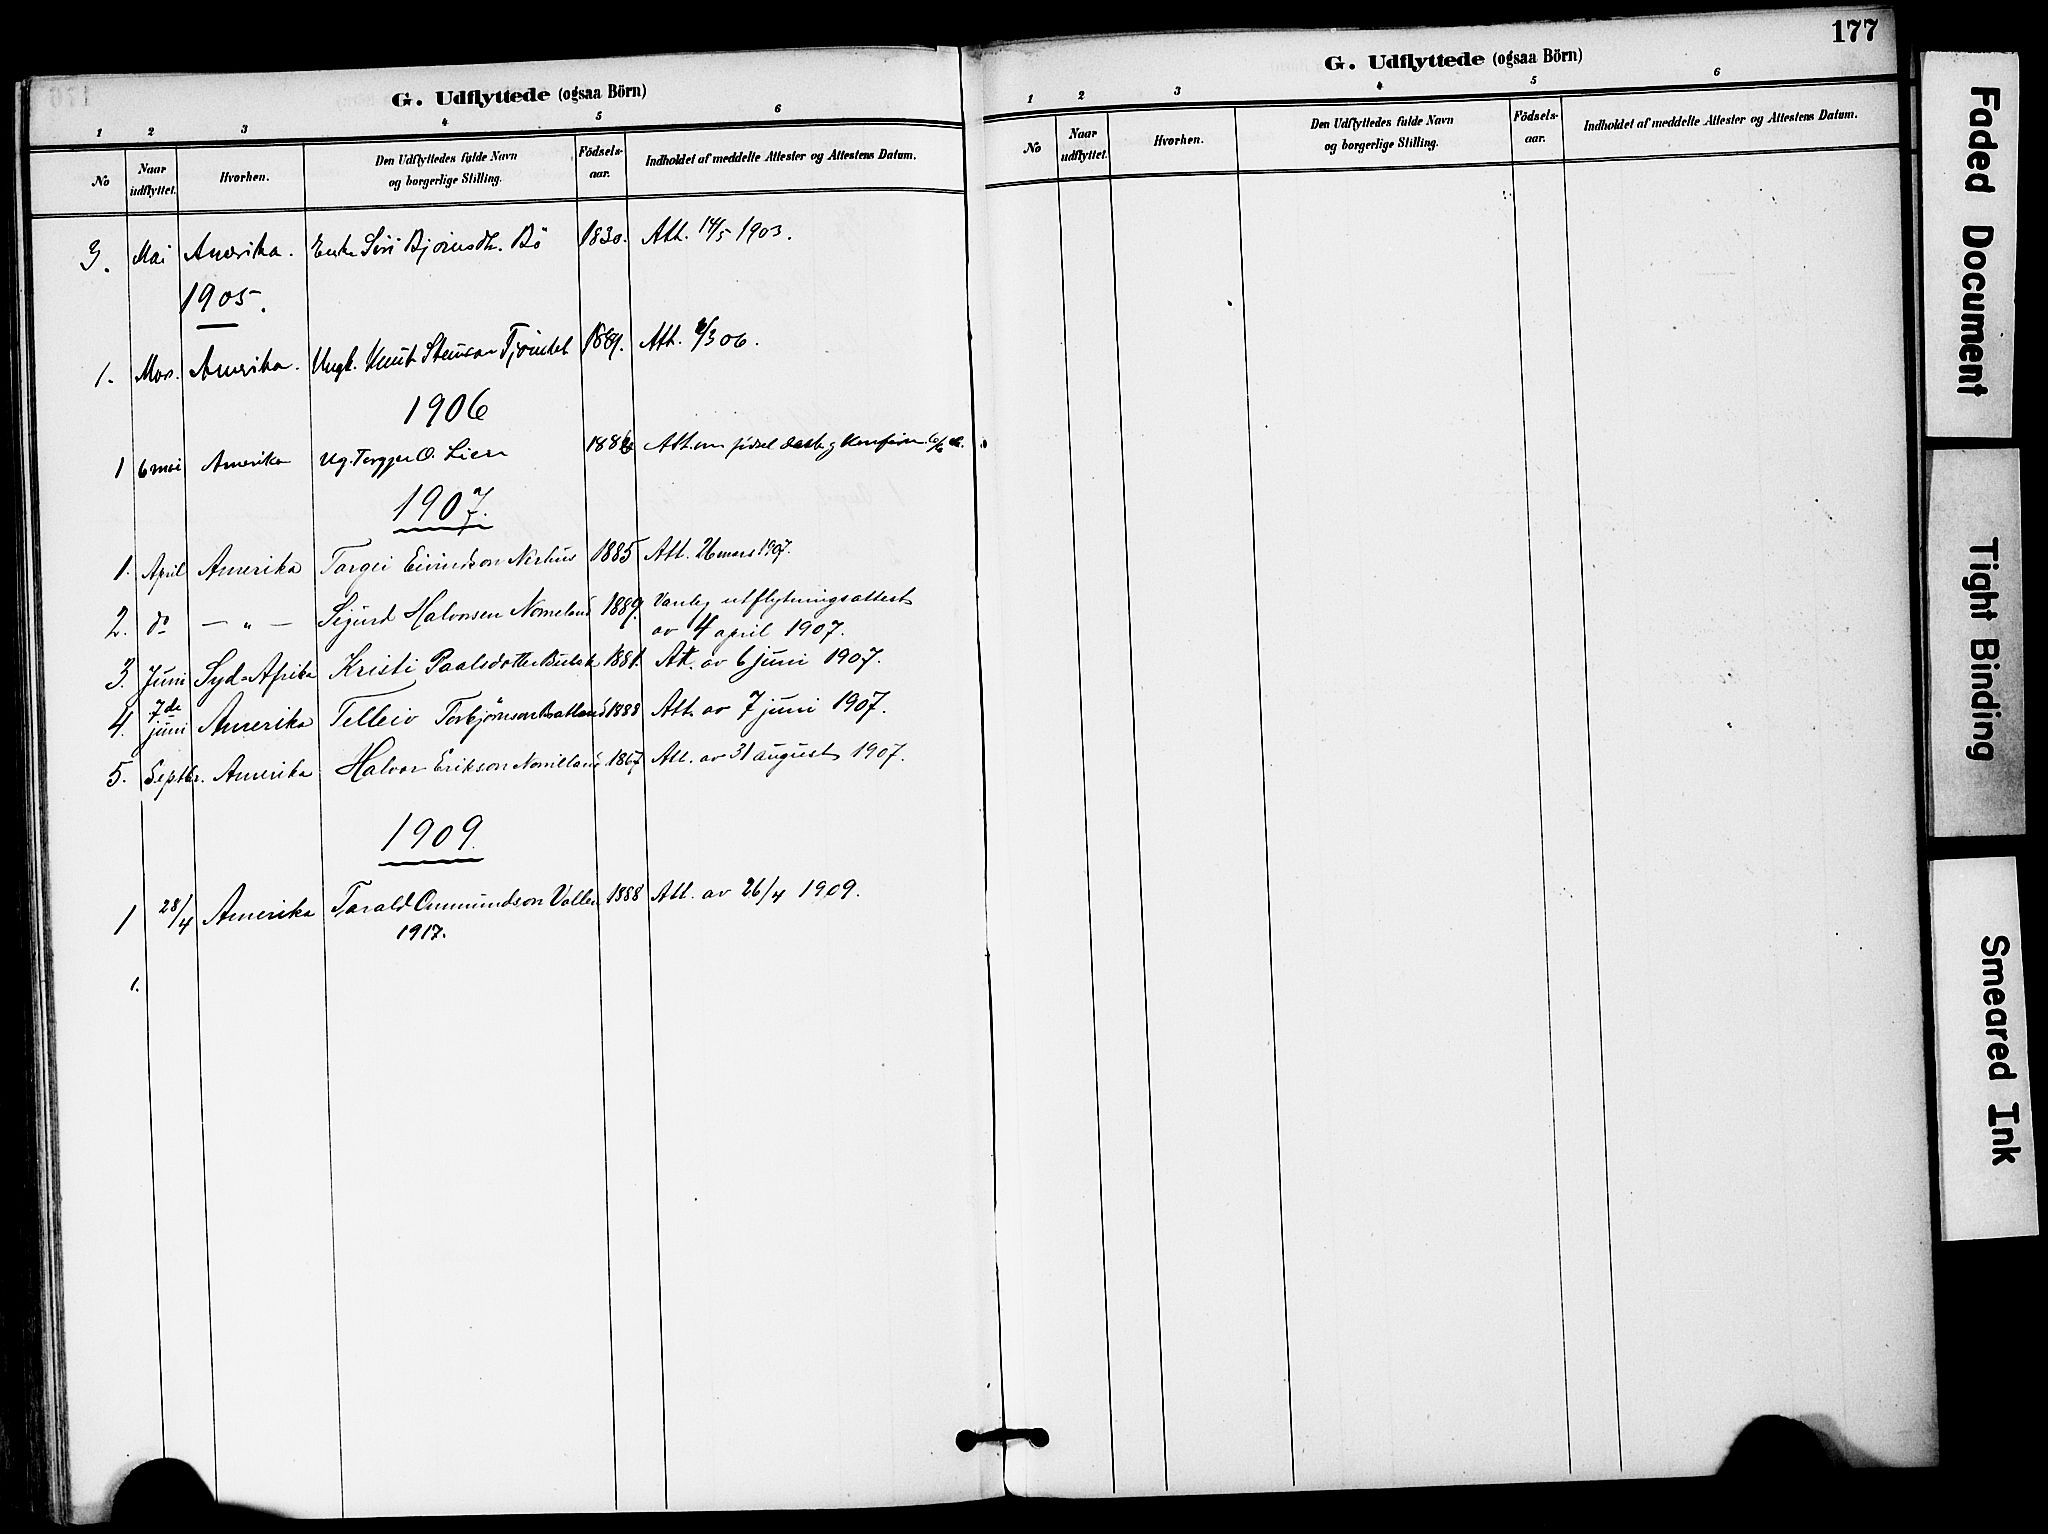 G. Udflyttede (ogsaa Börn)
1 2 3 4 5 6
No Naar udflyttet. Hvorhen. Den Udflyttedes fulde Navn og borgerlige Stilling. Födsels-aar. Indholdet af meddelte Attester og Attestens Datum.
3. Mai Amerika. Enke Siri Bjørnsdtr. Bö 1830. Att. 14/5 1903.
1905.
1. Mars. Amerika. Ungk. Knut Steinson 1889. Att. /3 06.
1906
1 6 mai Amerika Ug. Torgjer O. Lien 1886 Att. om födsel daab og Konfirm.
1907.
1. April Amerika Torgei Eivindson Nerhus 1885 Att. 26 mars 1907.
2. do — " — Sigurd Halvorsen Nomeland 1889. Vanleg utflytningsattest
av 4 april 1907.
3. Juni Syd-Afrika Kristi Paalsdotter 1881. Att. av 6 juni 1907.
4. 7de juni Amerika Telleiv Torbjörnson 1888 Att. av 7 juni 1907.
5. Septbr. Amerika Halvor Erikson Nomeland 1867 Att. av 31 august 1907.
1909.
1 28/4 Amerika Tarald Ommundson Vollen 1888 Att. av 26/4 1909.
1917.
1.
177
G. Udflyttede (ogsaa Börn)
1 2 3 4 5 6
No Naar udflyttet. Hvorhen. Den Udflyttedes fulde Navn og borgerlige Stilling. Födsels-aar. Indholdet af meddelte Attester og Attestens Datum.
Faded Document
Tight Binding
Smeared Ink